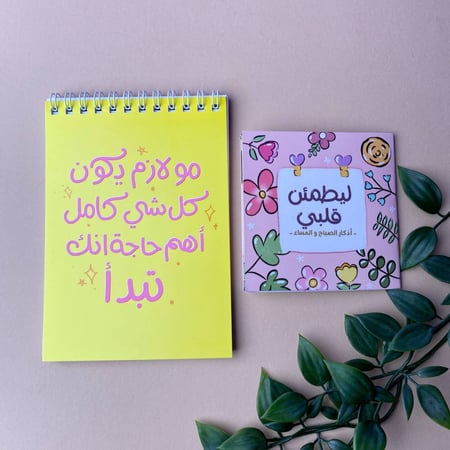 مو لازم يكون
كل شي كامل
أهم حاجة انك
تبدأ
ليطمئن
قلبي
- أذكار الصباح و المساء -